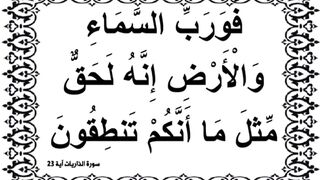 فَوَرَبِّ السَّمَاءِ
وَالْأَرْضِ إِنَّهُ لَحَقٌّ
مِّثْلَ مَا أَنَّكُمْ تَنطِقُونَ
سورة الذاريات آية 23